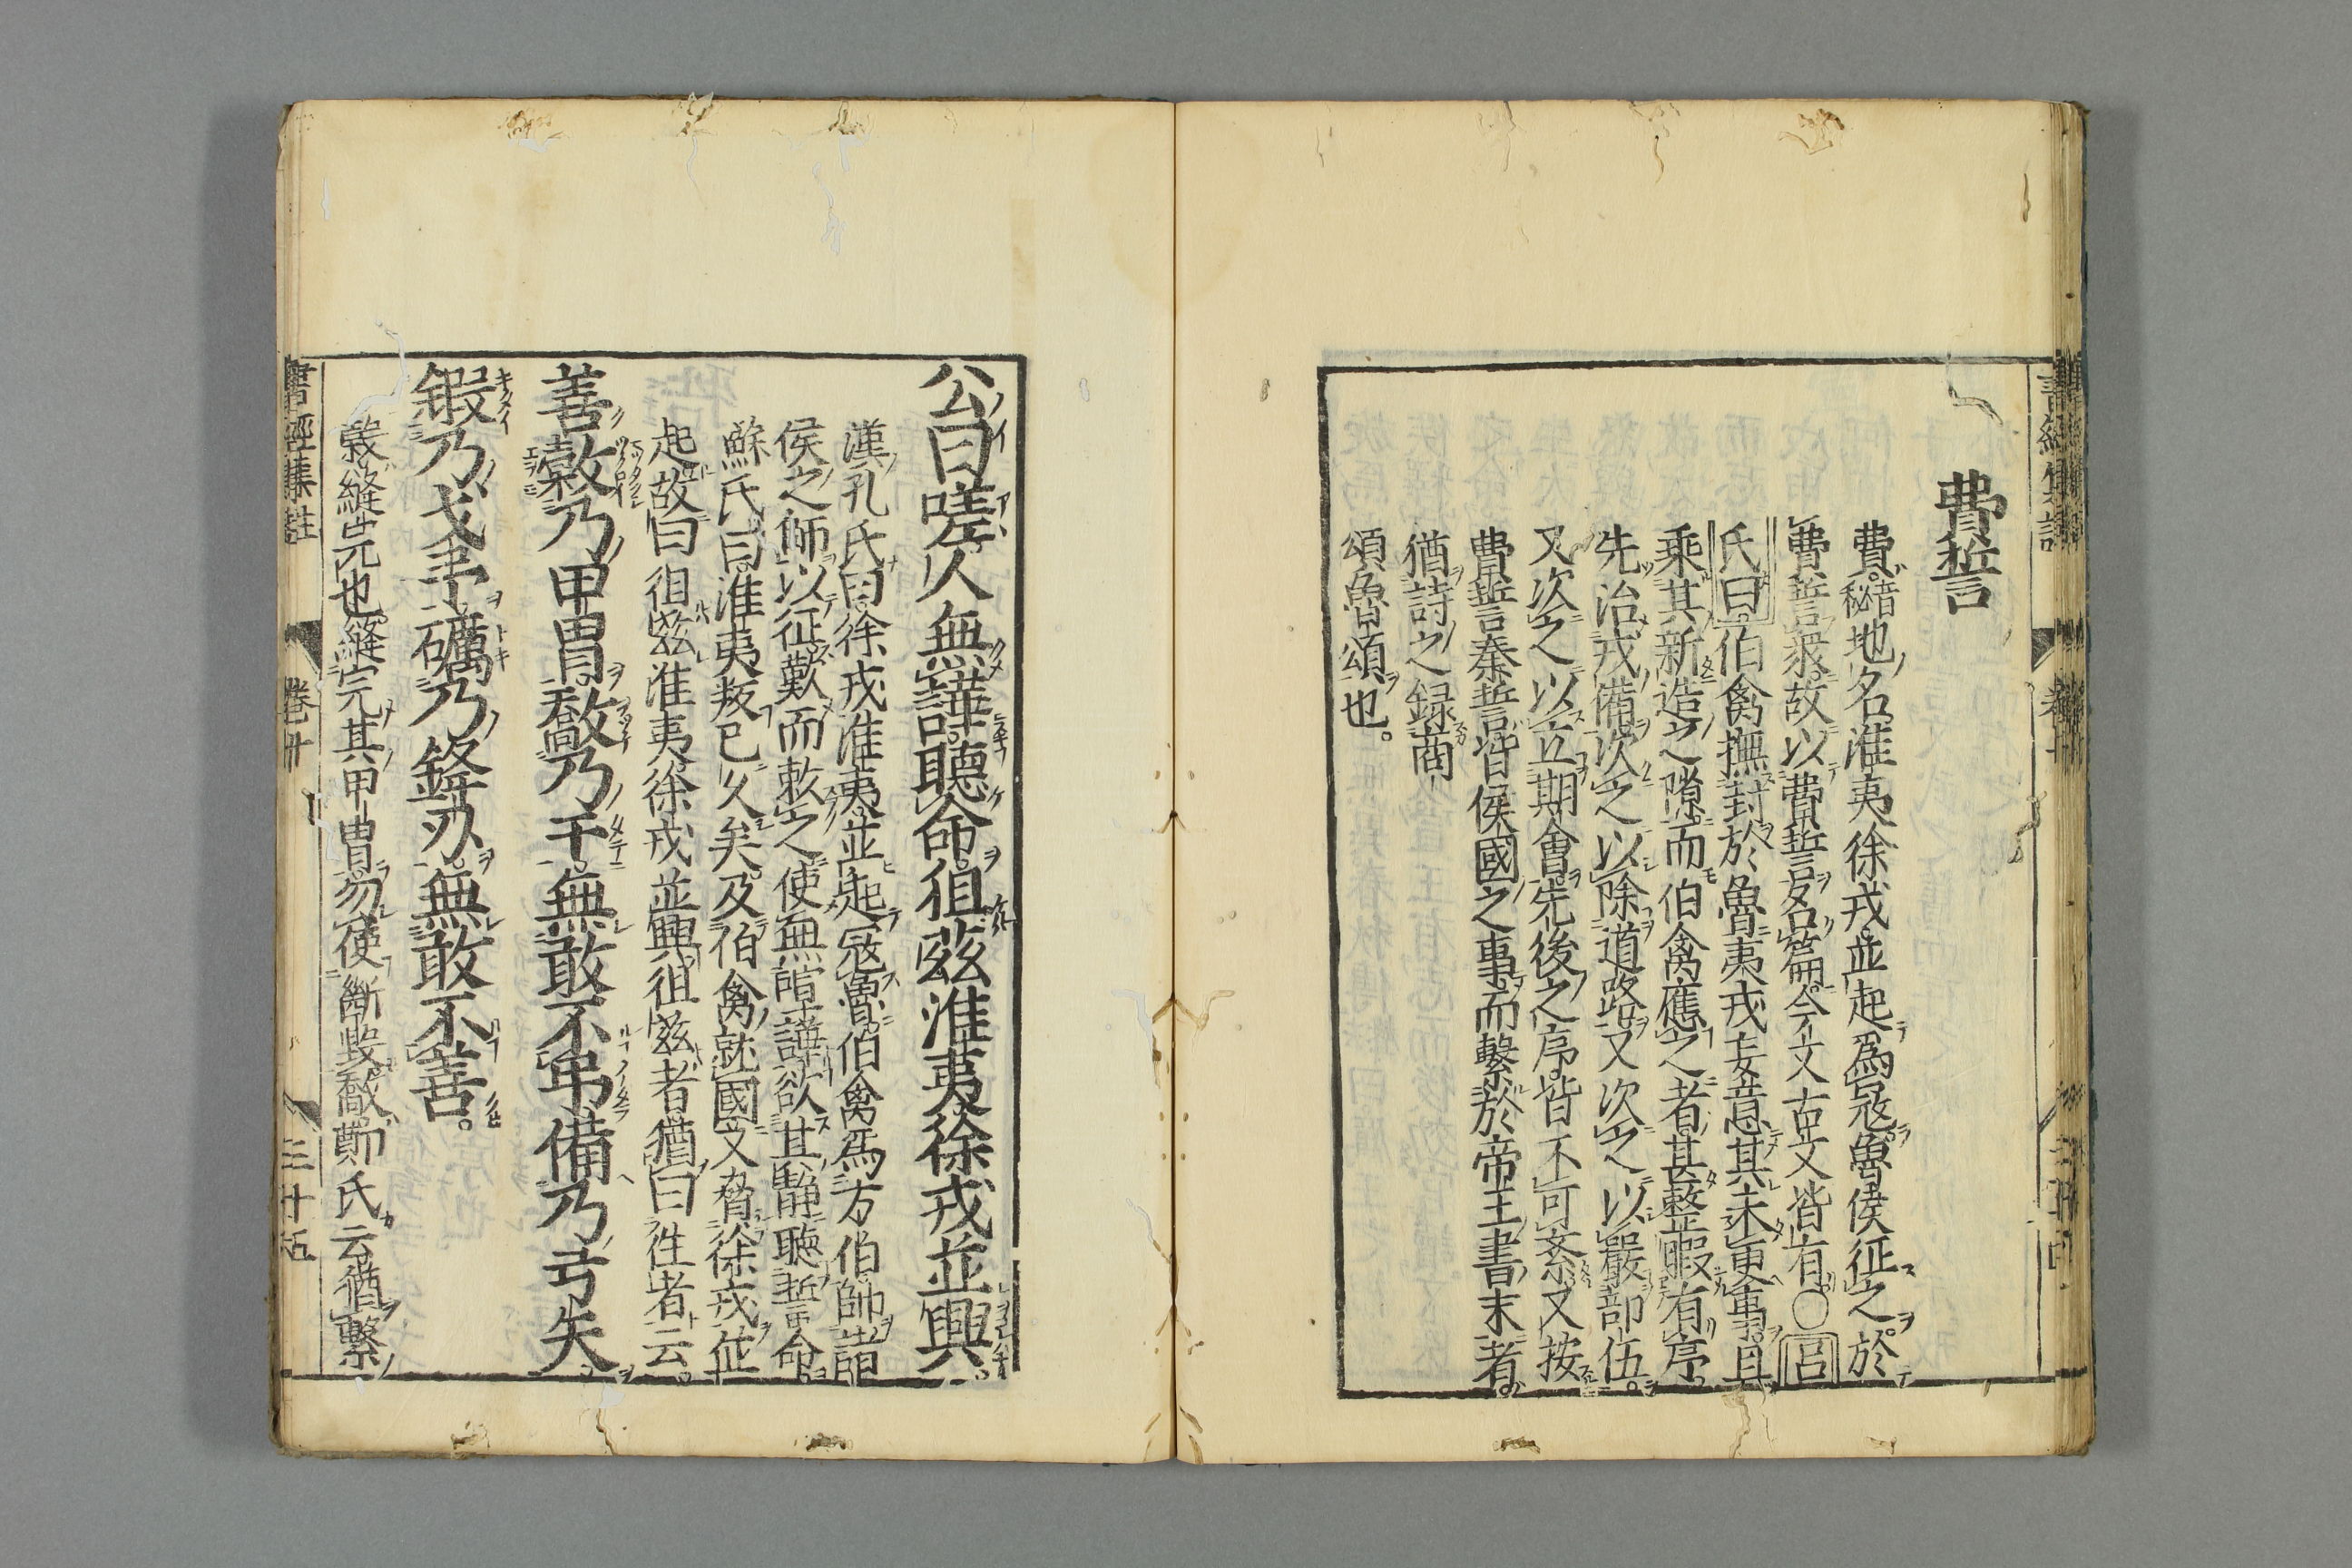 費誓
費音秘地名淮夷徐戎並起爲寇魯侯征之於
費誓衆故以費誓名篇今文古文皆有○呂
氏曰伯禽撫封於魯夷戎妄意其未更事且
乘其新造之隙而伯禽應之者甚整暇有序
先治戎備次之以除道路又次之以嚴部伍
又次之以立期會先後之序皆不可紊又按
費誓秦誓皆侯國之事而繫於帝王書末者
猶詩之録商
頌魯頌也
公曰嗟人無譁聽命徂茲淮夷徐戎並興
漢孔氏曰徐戎淮夷並起寇魯伯禽爲方伯帥諸
侯之師以征歎而敕之使無諠譁欲其靜聽誓命
蘇氏曰淮夷叛已久矣及伯禽就國又脅徐戎並
起故曰徂茲淮夷徐戎並興徂茲者猶曰往者云
善敹乃甲冑敿乃干無敢不弔備乃弓矢
鍛乃戈矛礪乃鋒刃無敢不善
敹縫完也縫完其甲冑勿使斷毀敿鄭氏云猶繫
書經集註 卷十 三十五